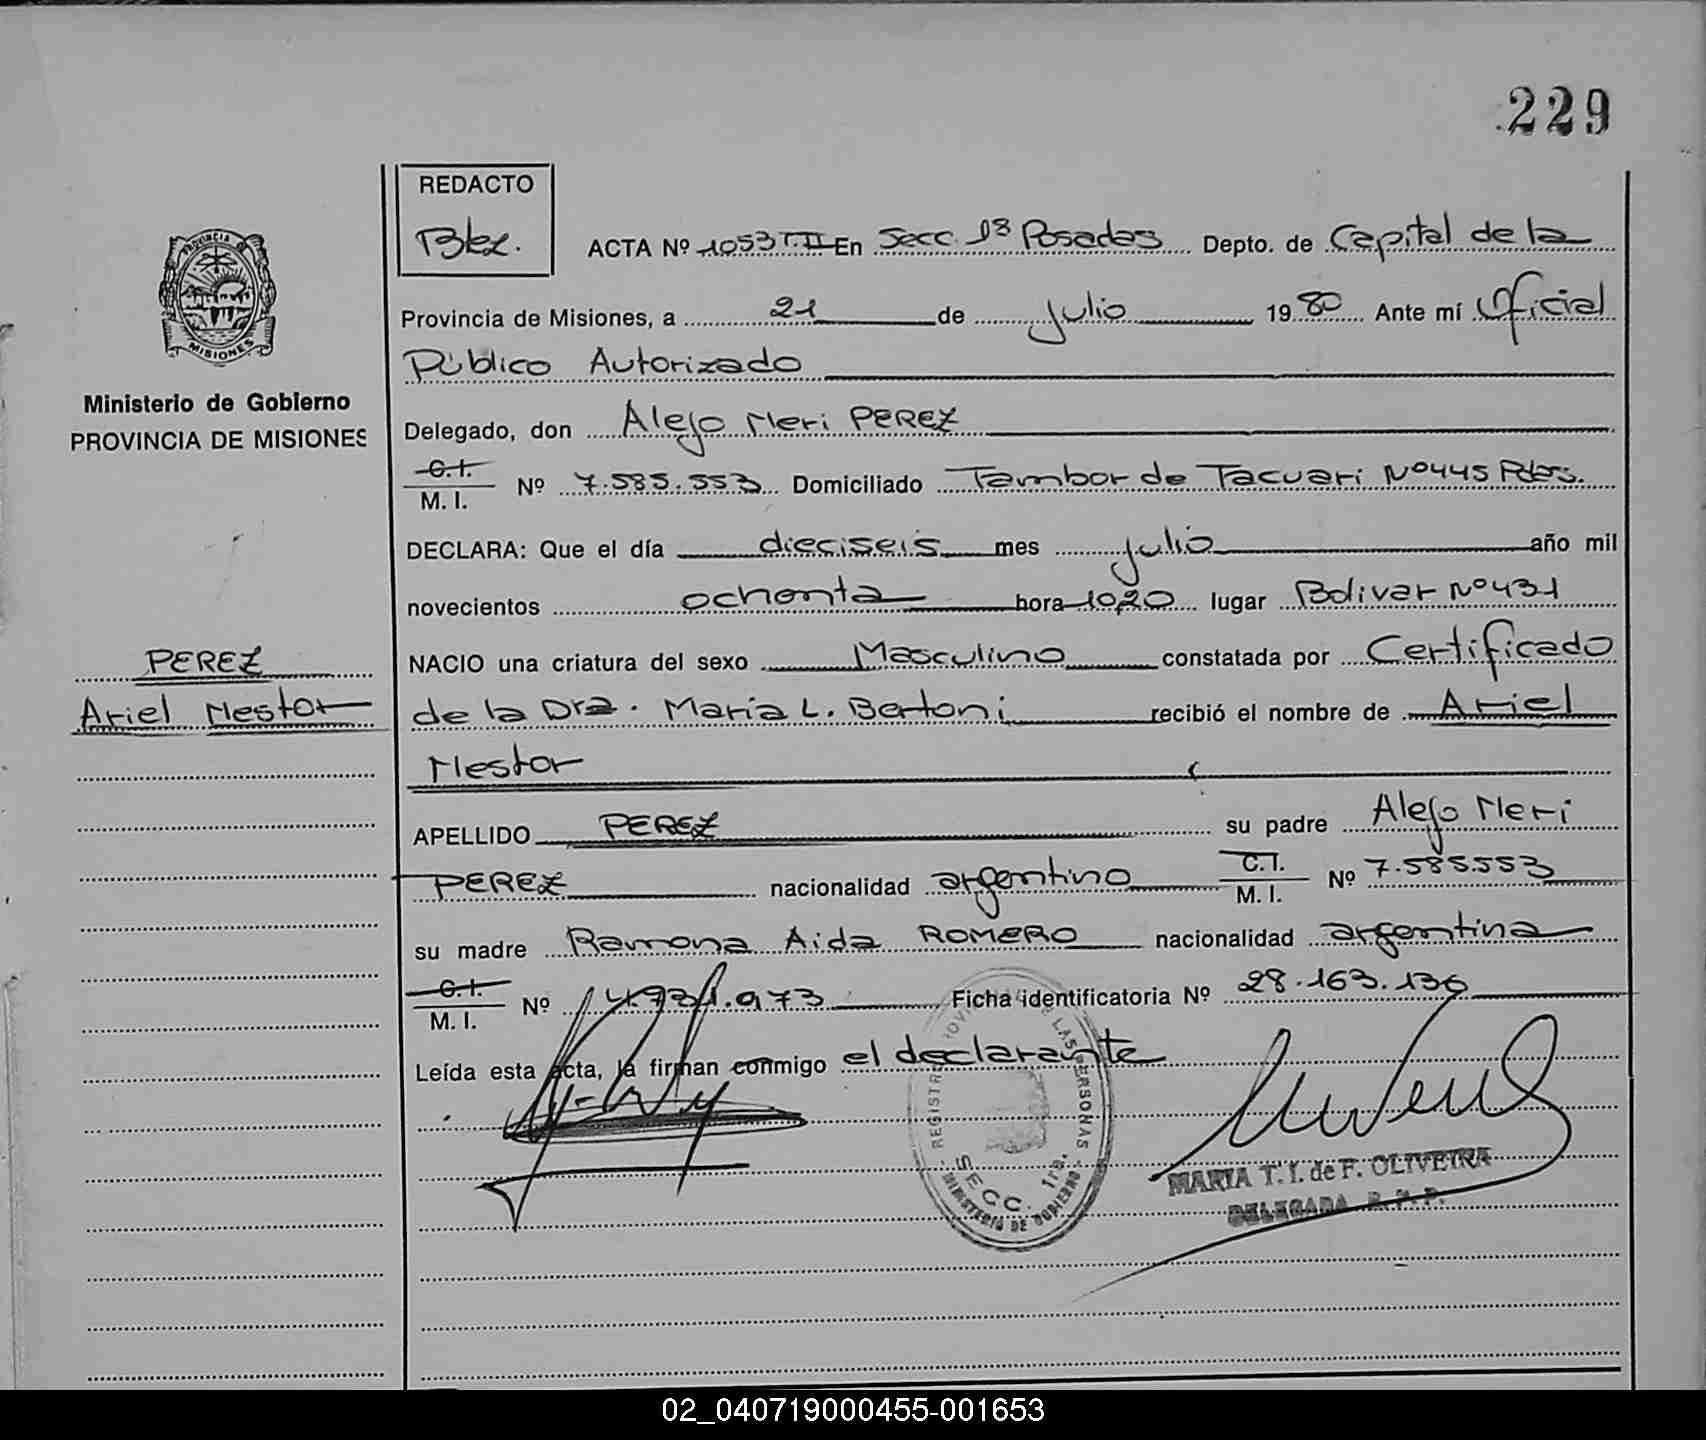 229
REDACTO
Blez.
ACTA Nº 1053 T.II En Secc. 1ª Posadas Depto. de Capital de la
Provincia de Misiones, a 21 de Julio 1980 Ante mí Oficial
Público Autorizado
Delegado, don Alejo Neri PEREZ
C.I.
M. I. Nº 7.585.553 Domiciliado Tambor de Tacuari Nº445 Pdas.
DECLARA: Que el día dieciseis mes julio año mil
novecientos ochenta hora 10,20 lugar Bolivar Nº431
NACIO una criatura del sexo Masculino constatada por Certificado
de la Dra. Maria L. Bertoni recibió el nombre de Ariel
Nestor
APELLIDO PEREZ su padre Alejo Neri
PEREZ nacionalidad argentino C.I. M. I. Nº 7.585.553
su madre Ramona Aida ROMERO nacionalidad argentina
C.I.
M. I. Nº 4.731.973 Ficha identificatoria Nº 28.163.136
Leída esta acta, la firman conmigo el declarante
REGISTRO PROVINCIAL DE LAS PERSONAS
SECC. 1ra.
MINISTERIO DE GOBIERNO
MARIA T. I. de F. OLIVEIRA
DELEGADA R. P. P.
PROVINCIA DE
MISIONES
Ministerio de Gobierno
PROVINCIA DE MISIONES
PEREZ
Ariel Nestor
02_040719000455-001653